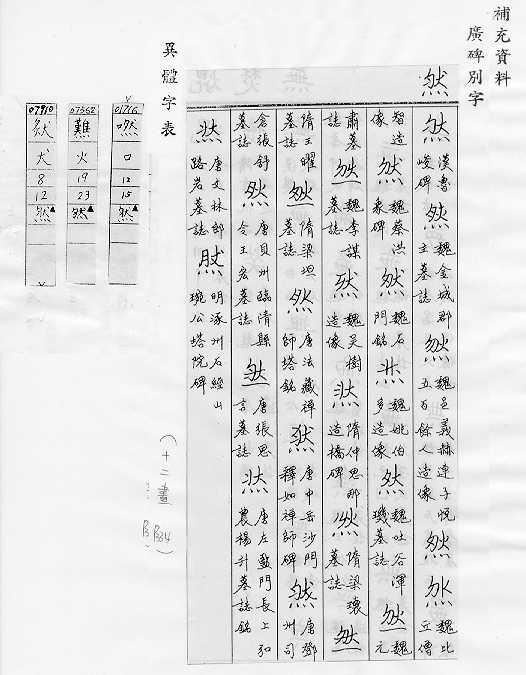 補充資料
廣碑別字
然
然 漢魯峻碑 然 魏金城郡主墓誌 然 魏邑義赫連子悅五百餘人造像 然 然 魏比丘僧
智造像 然 魏蔡洪象碑 然 魏石門銘 然 魏姚伯多造像 然 魏吐谷渾璣墓誌 然 魏元
肅墓誌 然 魏李謀墓誌 然 魏吴樹造像 然 隋仲思那造橋碑 然 隋梁瓌墓誌 然
隋王曜墓誌 然 隋梁坦墓誌 然 唐法藏禪師塔銘 然 唐中岳沙門釋如禪師碑 然 唐鄧州司
倉張舒墓誌 然 唐貝州臨清縣令王宏墓誌 然 唐張思言墓誌 然 唐左監門長上弘農楊計墓誌銘
然 唐文林郎路岩墓誌 然 明涿州石經山琬公塔院碑
(十二畫 B34)
異體字表
01766 口 12 15 然▲
07362 火 19 23 然▲
07910 犬 8 12 然▲